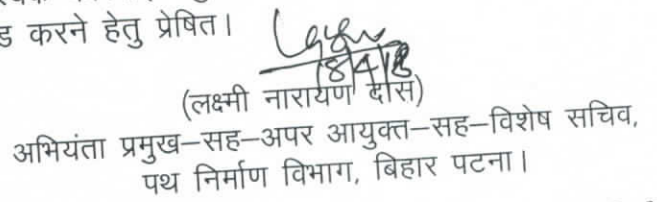 ड करने हेतु प्रेषित।
18/4/18
(लक्ष्मी नारायण दास)
अभियंता प्रमुख–सह–अपर आयुक्त–सह–विशेष सचिव,
पथ निर्माण विभाग, बिहार पटना।